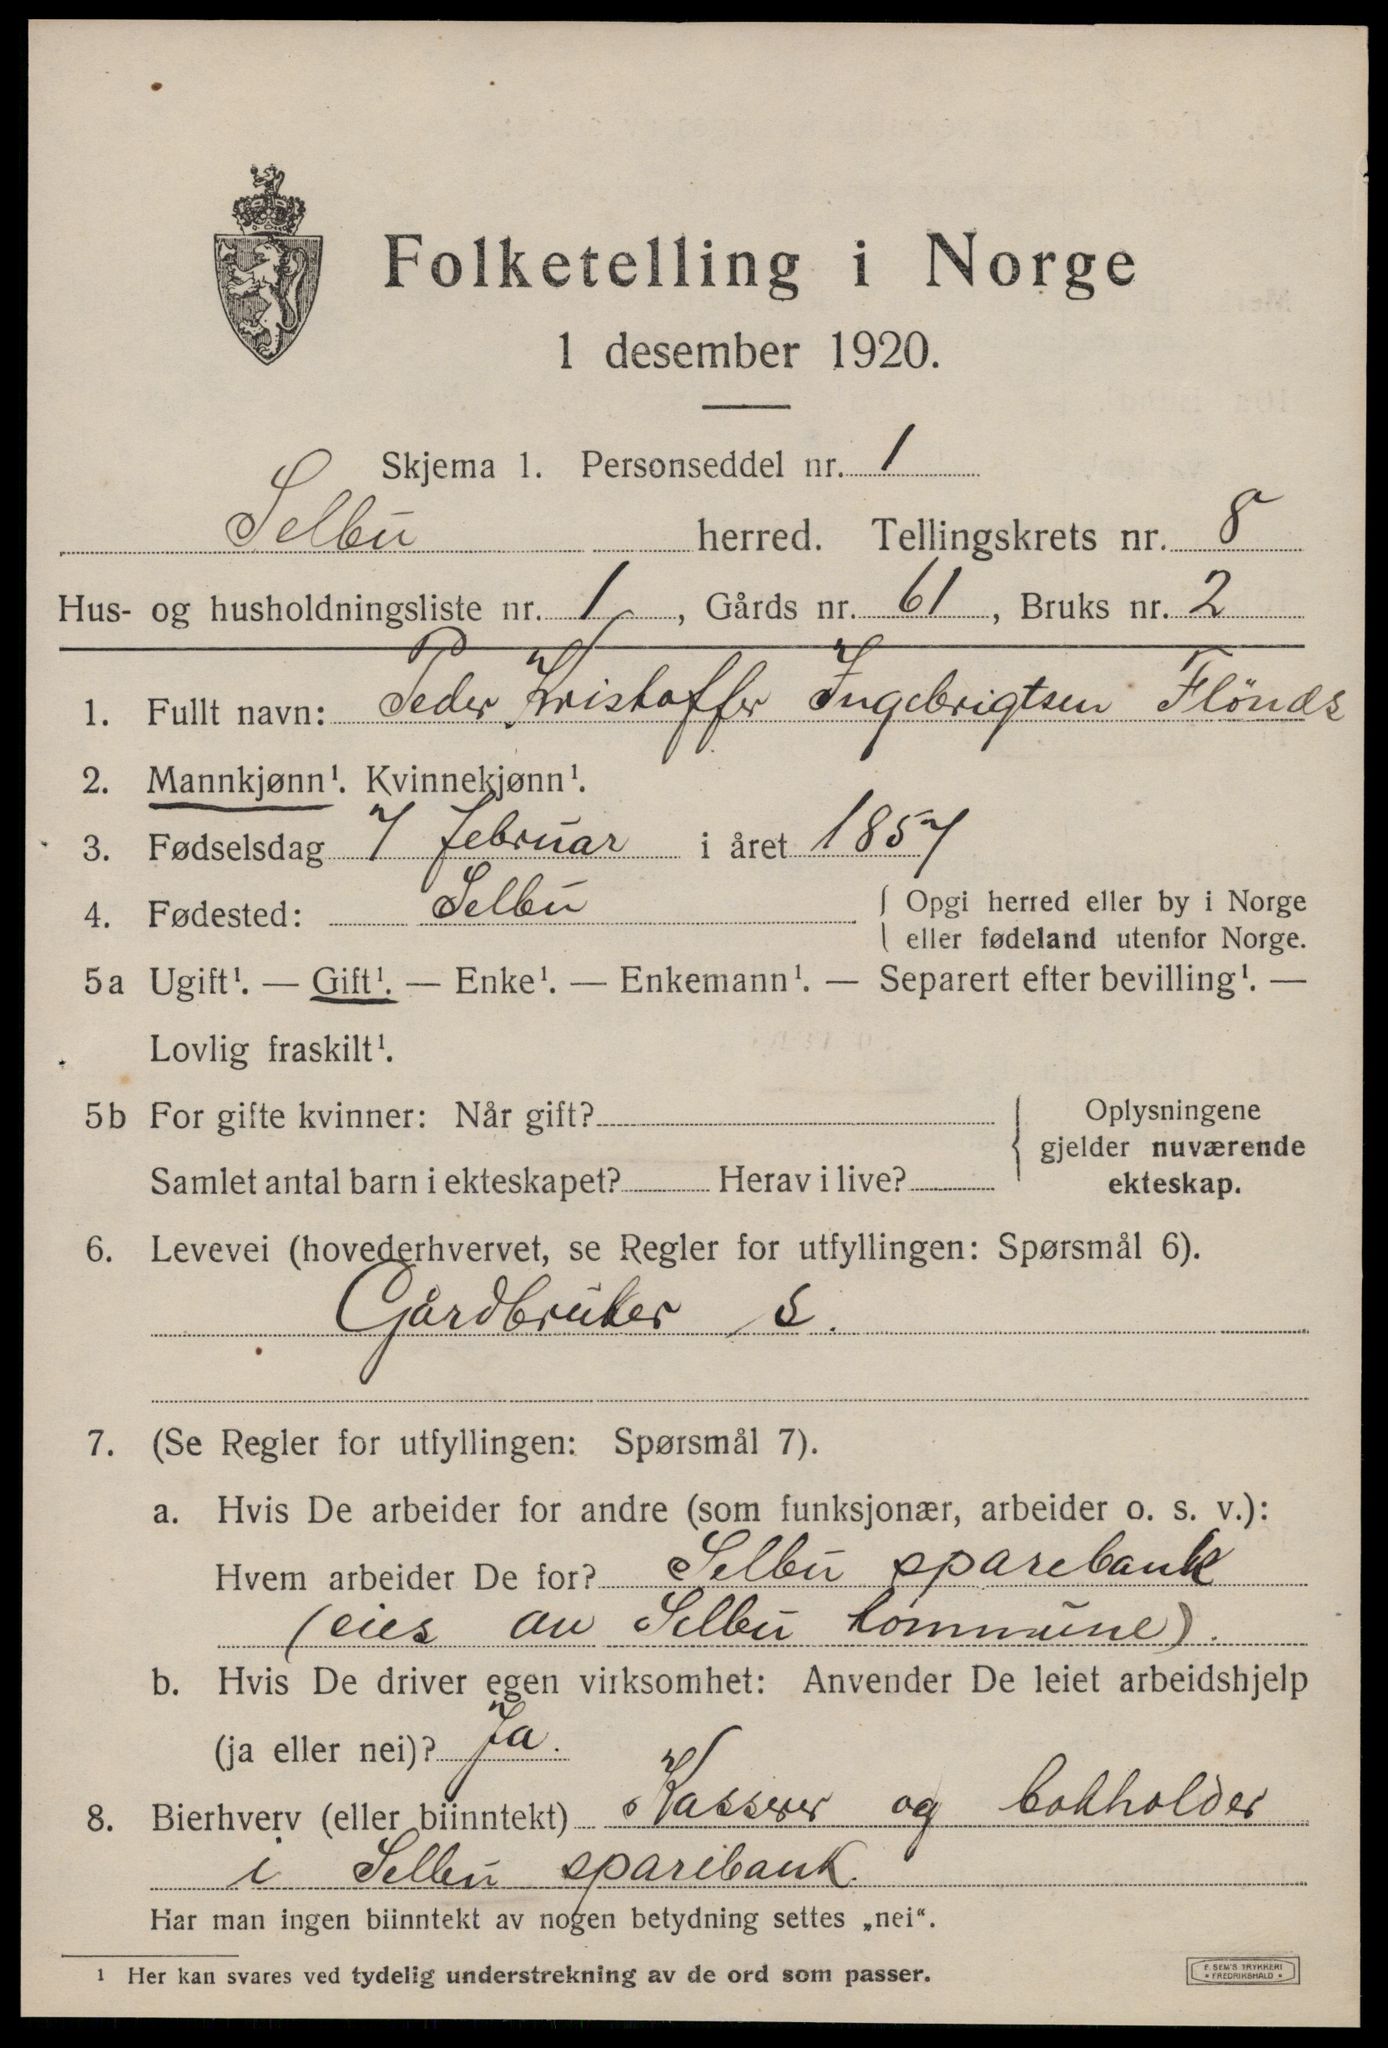 Folketelling i Norge
1 desember 1920.
Skjema 1. Personseddel nr. 1
Selbu herred. Tellingskrets nr. 8
Hus- og husholdningsliste nr. 1, Gårds nr. 61, Bruks nr. 2
1. Fullt navn: Peder Kristoffer Ingebrigtsen Flönds
2. Mannkjønn¹. Kvinnekjønn¹.
3. Fødselsdag 7 februar i året 1857
4. Fødested: Selbu { Opgi herred eller by i Norge
eller fødeland utenfor Norge.
5a Ugift¹. — Gift¹. — Enke¹. — Enkemann¹. — Separert efter bevilling¹. —
Lovlig fraskilt¹.
5b For gifte kvinner: Når gift? { Oplysningene
gjelder nuværende
Samlet antal barn i ekteskapet? Herav i live? ekteskap.
6. Levevei (hovederhvervet, se Regler for utfyllingen: Spørsmål 6).
Gårdbruker S.
7. (Se Regler for utfyllingen: Spørsmål 7).
a. Hvis De arbeider for andre (som funksjonær, arbeider o. s. v.):
Hvem arbeider De for? Selbu sparebank
(eies av Selbu kommune).
b. Hvis De driver egen virksomhet: Anvender De leiet arbeidshjelp
(ja eller nei)? Ja.
8. Bierhverv (eller biinntekt) Kasserer og bokholder
i Selbu sparebank.
Har man ingen biinntekt av nogen betydning settes „nei“.
¹ Her kan svares ved tydelig understrekning av de ord som passer.
F. SEM'S TRYKKERI
* FREDRIKSHALD *